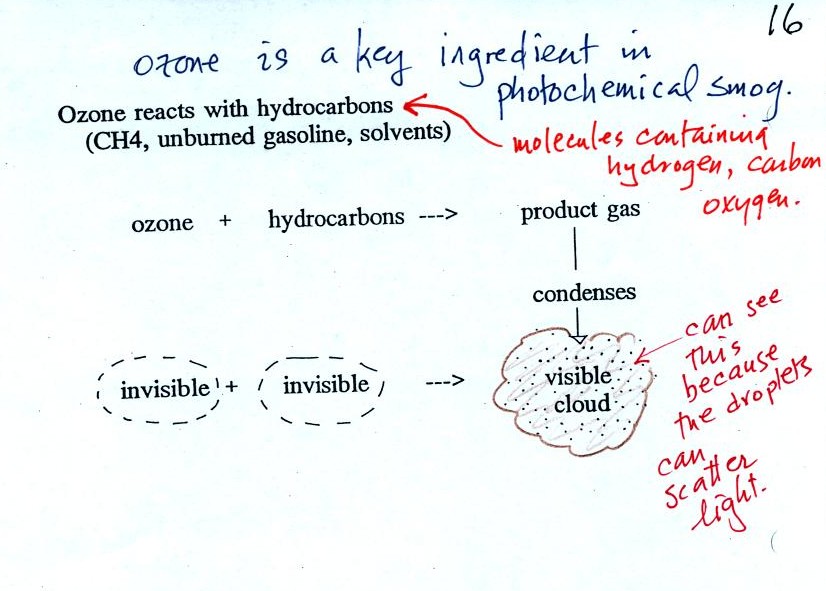 16
ozone is a key ingredient in
photochemical smog.
Ozone reacts with hydrocarbons
(CH4, unburned gasoline, solvents)
molecules containing
hydrogen, carbon
oxygen.
ozone + hydrocarbons ---> product gas
condenses
invisible + invisible ---> visible
cloud
can see
this
because
the droplets
can
scatter
light.